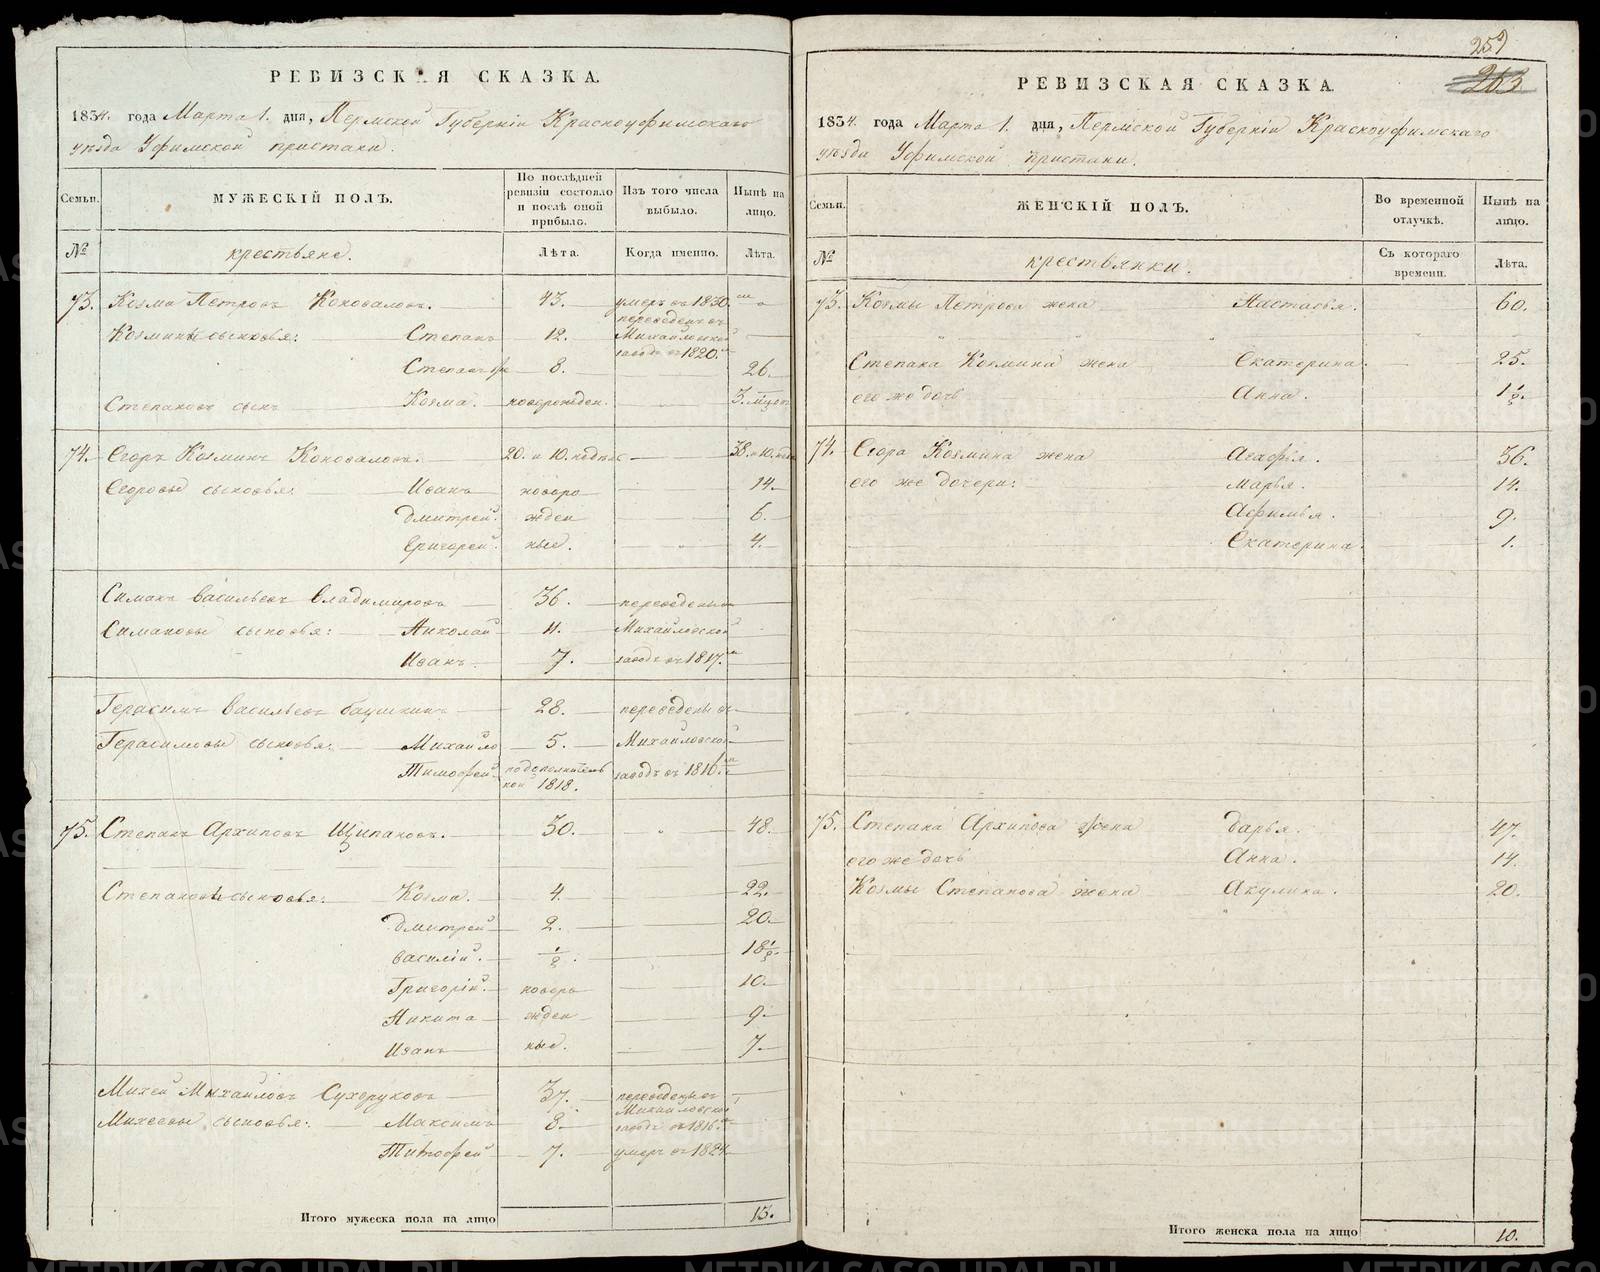 РЕВИЗСКАЯ СКАЗКА.
1834. года Марта 1. дня, Пермской Губернiи Красноуфимскаго
уѣзда Уфимской пристани.
Семьи.
МУЖЕСКІЙ ПОЛЪ.
По послѣдней ревизіи состояло и послѣ оной прибыло.
Изъ того числа выбыло.
Нынѣ на лицо.
№
крестьяне.
Лѣта.
Когда именно.
Лѣта.
73. Козма Петровъ Коноваловъ. 43. умеръ въ 1830.
Козмины сыновья: Степанъ 12. переведенъ въ Михайловской заводъ въ 1820.
Степанъ 8. 26.
Степановъ сынъ Козма. новорожден. 3. мѣсяц
74. Егоръ Козминъ Коноваловъ. 20. и 10. недѣль 38. и 10. нед
Егоровы сыновья: Иванъ новоро 14.
Дмитрей. жден 6.
Григорей. ные. 4.
Симанъ Васильевъ Владимировъ 36. переведены
Симановы сыновья: Николай 11. Михайловской
Иванъ. 7. заводъ въ 1817.
Герасимъ Васильевъ Баушкинъ 28. переведены въ
Герасимовы сыновья: Михайло 5. Михайловской
Тимофей подополнительной 1818. заводъ въ 1816.
75. Степанъ Архиповъ Щипановъ. 30. 48.
Степановы сыновья: Козма. 4. 22.
Дмитрей 2. 20.
Василій. 1/2. 18 1/2.
Григорій. новоро 10.
Никита жден 9.
Иванъ ные. 7.
Михей Михайловъ Сухоруковъ 37. переведены въ
Михеевы сыновья: Максимъ 8. Михайловской заводъ въ 1816.
Тимофей 7. умеръ въ 1824.
Итого мужеска пола на лицо 13.
259
263
РЕВИЗСКАЯ СКАЗКА.
1834. года Марта 1. дня, Пермской Губернiи Красноуфимскаго
уѣзда Уфимской пристани.
Семьи.
ЖЕНСКІЙ ПОЛЪ.
Во временной отлучкѣ.
Нынѣ на лицо.
№
крестьянки.
Съ котораго времени.
Лѣта.
73. Козмы Петрова жена Настасья. 60.
Степана Козмина жена Екатерина. 25.
его же дочь Анна. 1 1/2.
74. Егора Козмина жена Агафья. 36.
его же дочери: Марья. 14.
Афимья. 9.
Екатерина. 1.
75. Степана Архипова жена Дарья. 47.
его же дочь Анна. 14.
Козмы Степанова жена Акулина. 20.
Итого женска пола на лицо 10.
METRIKI.GASO-URAL.RU